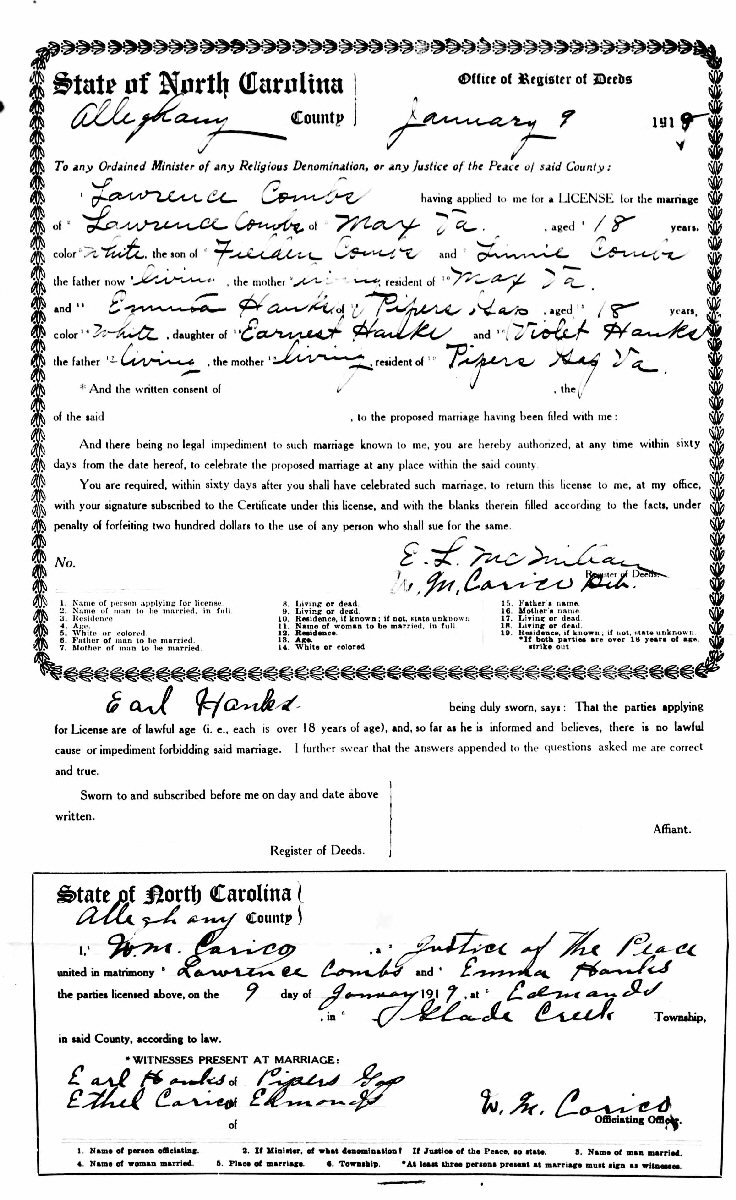 State of North Carolina
Office of Register of Deeds
Alleghany County
January 9 1919
To any Ordained Minister of any Religious Denomination, or any Justice of the Peace of said County:
1 Lawrence Combs having applied to me for a LICENSE for the marriage
of 2 Lawrence Combs of 3 Max Va. , aged 4 18 years,
color 5 White, the son of 6 Fielden Combs and 7 Linnie Combs
the father now 8 living , the mother 9 living, resident of 10 Max Va.
and 11 Emma Hanks of Pipers Gap , aged 18 years,
color 14 White , daughter of 15 Earnest Hanks and 16 Violet Hanks
the father living , the mother living , resident of Pipers Gap Va.
*And the written consent of , the
of the said , to the proposed marriage having been filed with me:
And there being no legal impediment to such marriage known to me, you are hereby authorized, at any time within sixty
days from the date hereof, to celebrate the proposed marriage at any place within the said county.
You are required, within sixty days after you shall have celebrated such marriage, to return this license to me, at my office,
with your signature subscribed to the Certificate under this license, and with the blanks therein filled according to the facts, under
penalty of forfeiting two hundred dollars to the use of any person who shall sue for the same.
No.
E. L. McMillan
Register of Deeds.
W. M. Carico
1. Name of person applying for license.
2. Name of man to be married, in full.
3. Residence
4. Age.
5. White or colored.
6. Father of man to be married.
7. Mother of man to be married.
8. Living or dead.
9. Living or dead.
10. Residence, if known; if not, state unknown
11. Name of woman to be married, in full.
12. Residence.
13. Age.
14. White or colored
15. Father's name.
16. Mother's name.
17. Living or dead.
18. Living or dead.
19. Residence, if known; if not, state unknown.
*If both parties are over 18 years of age,
strike out
Earl Hanks being duly sworn, says: That the parties applying
for License are of lawful age (i. e., each is over 18 years of age), and, so far as he is informed and believes, there is no lawful
cause or impediment forbidding said marriage. I further swear that the answers appended to the questions asked me are correct
and true.
Sworn to and subscribed before me on day and date above
written.
Affiant.
Register of Deeds.
State of North Carolina
Alleghany County
I, 1 W.M. Carico , a 2 Justice of The Peace
united in matrimony 3 Lawrence Combs and 4 Emma Hanks
the parties licensed above, on the 9 day of January 1919, at 5 Edmonds
, in 6 Glade Creek Township,
in said County, according to law.
*WITNESSES PRESENT AT MARRIAGE:
Earl Hanks of Pipers Gap
Ethel Carico of Edmonds
of
W. M. Carico
Officiating Officer.
1. Name of person officiating. 2. If Minister, of what denomination? If Justice of the Peace, so state. 3. Name of man married.
4. Name of woman married. 5. Place of marriage. 6. Township. *At least three persons present at marriage must sign as witnesses.